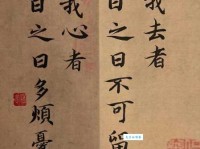 我去者
日之日不可留
我心者
日之日多煩憂